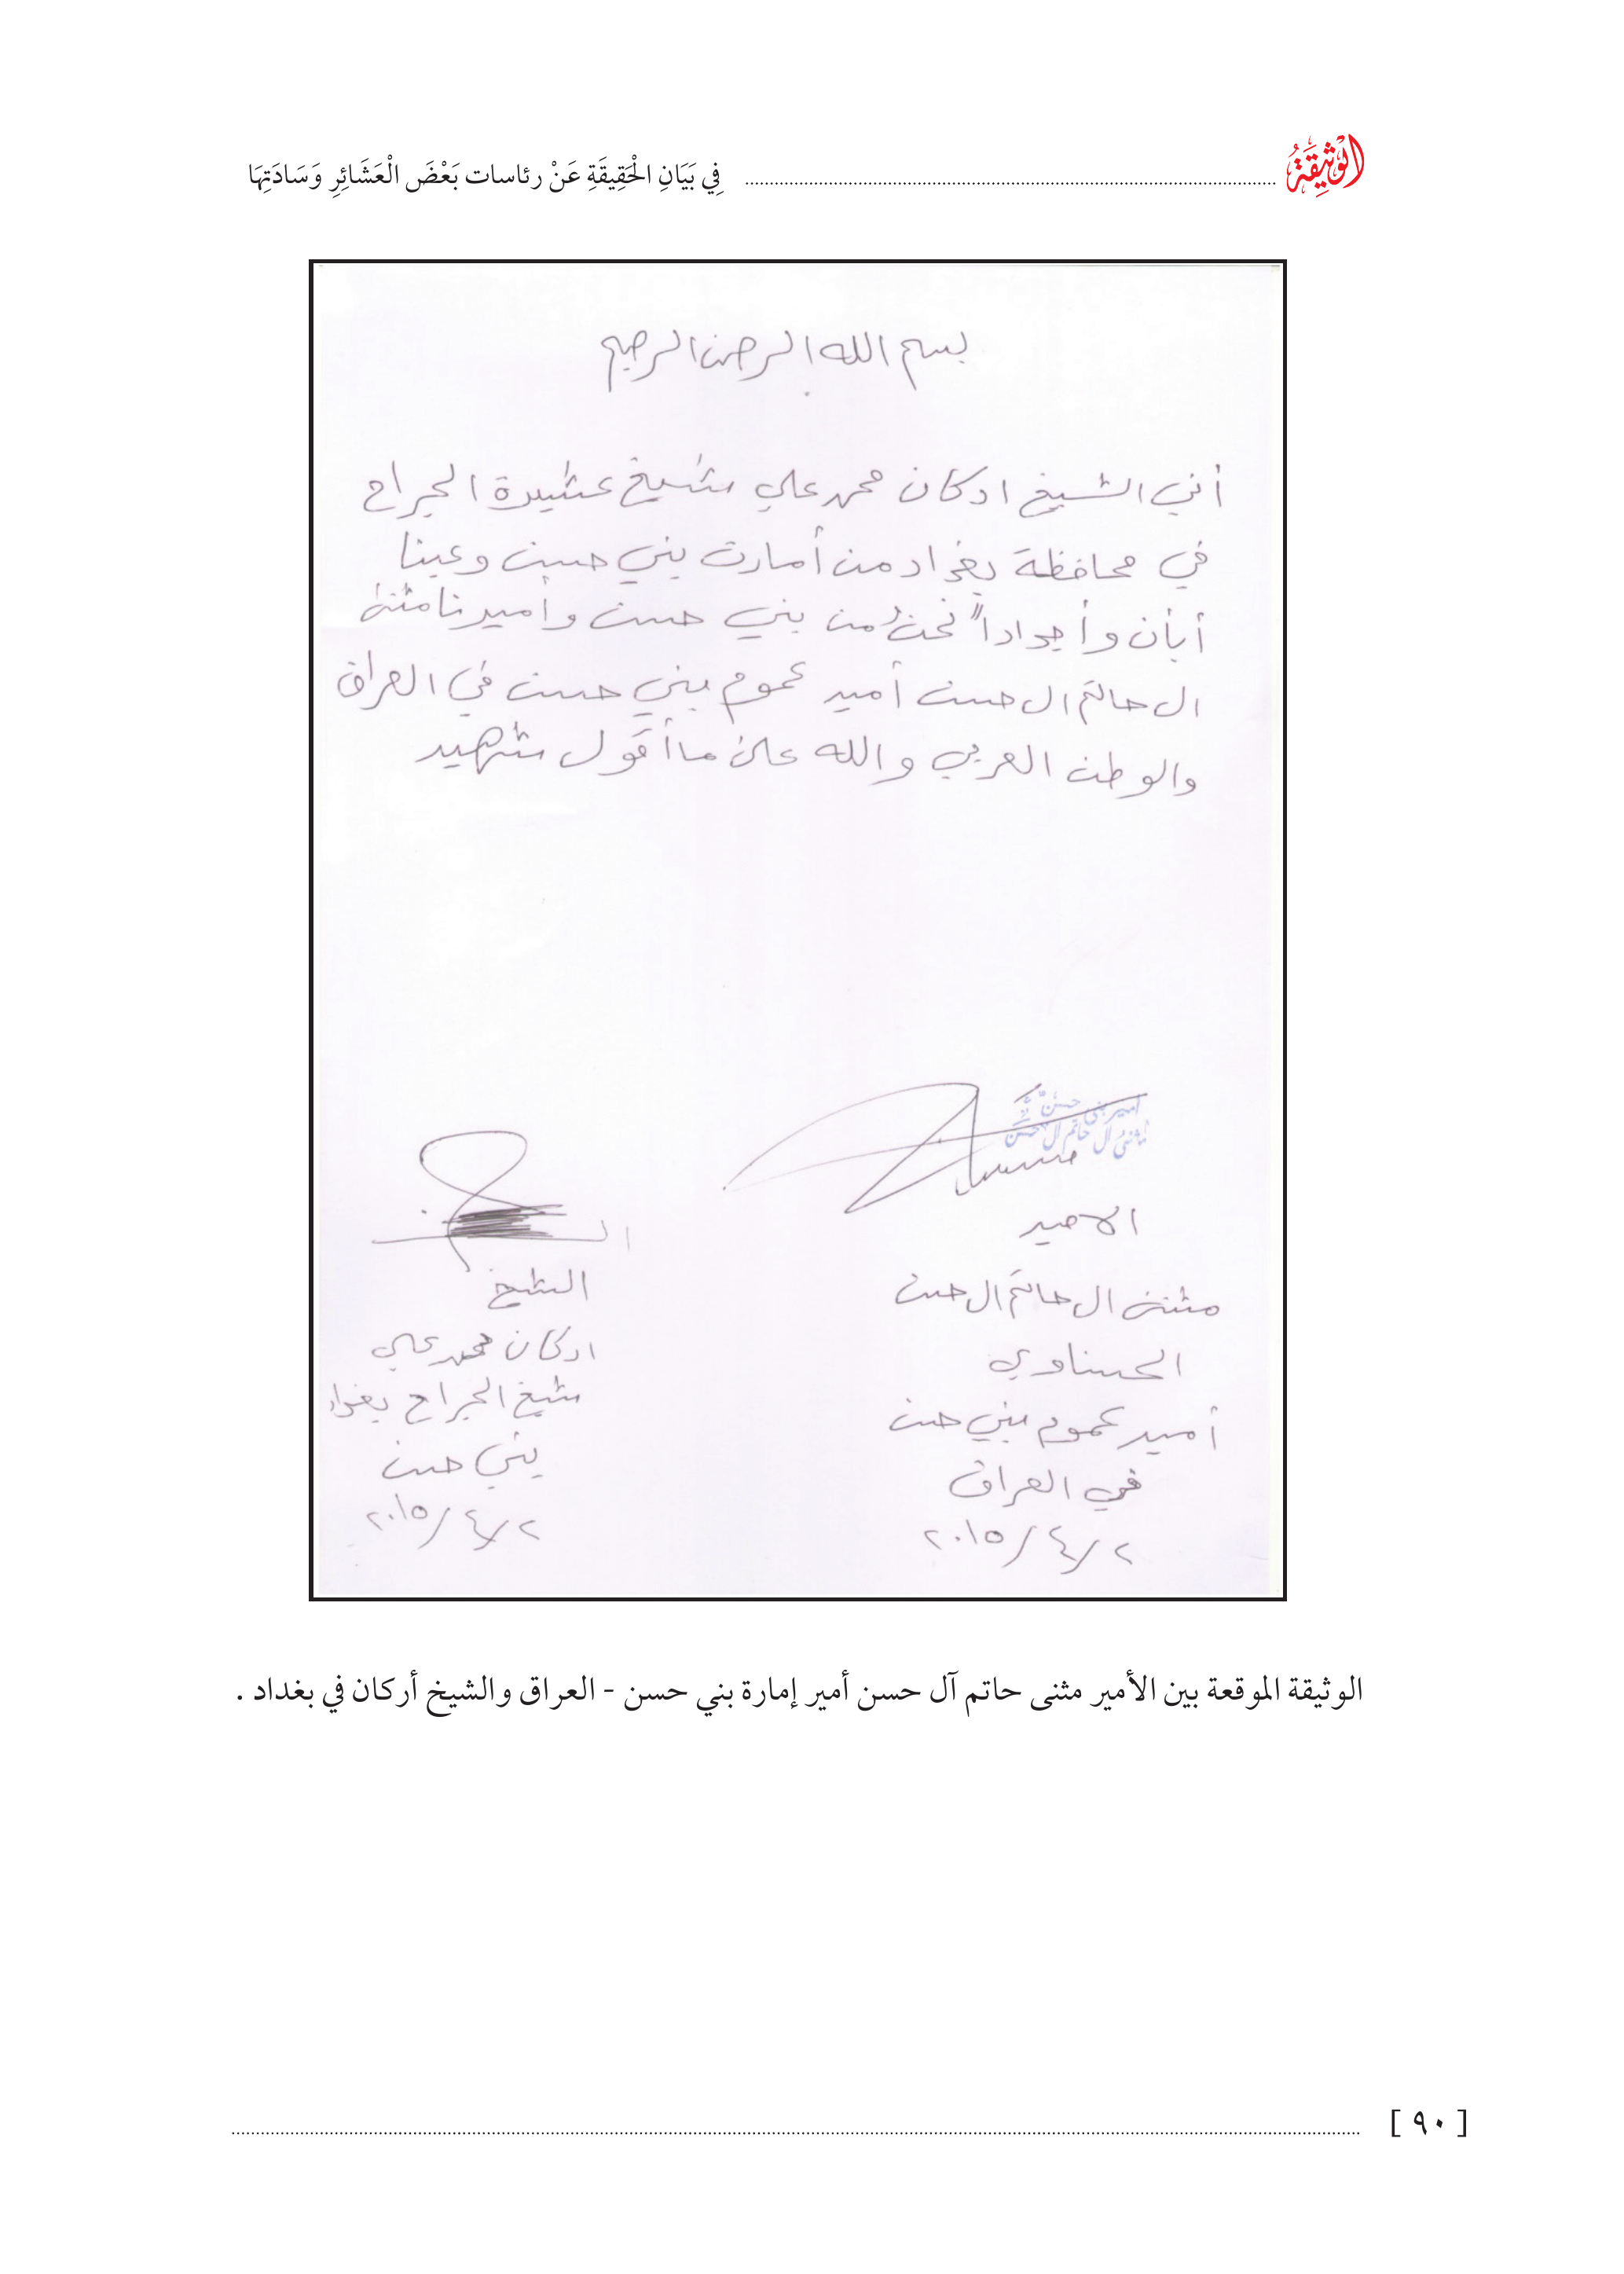 الْوَثِيقَةُ
فِي بَيَانِ الْحَقِيقَةِ عَنْ رئاسات بَعْضَ الْعَشَائِرِ وَسَادَتِهَا
بسم الله الرحمن الرحيم
أني الشيخ اركان محمد علي شيخ عشيرة الجراح
في محافظة بغداد من أمارت بني حسن وعينا
أبأن وأجداداً نحن من بني حسن وأميرنا مثنى
ال حاتم ال حسن أمير عموم بني حسن في العراق
والوطن العربي والله على ما أقول شهيد
امير بني حسن
مثنى ال حاتم ال حسن
الامير
مثنى ال حاتم ال حسن
الحسناوي
أمير عموم بني حسن
في العراق
٢/٤/٢٠١٥
الشيخ
اركان محمد علي
شيخ الجراح بغداد
بني حسن
٢/٤/٢٠١٥
الوثيقة الموقعة بين الأمير مثنى حاتم آل حسن أمير إمارة بني حسن - العراق والشيخ أركان في بغداد .
[ ٩٠ ]